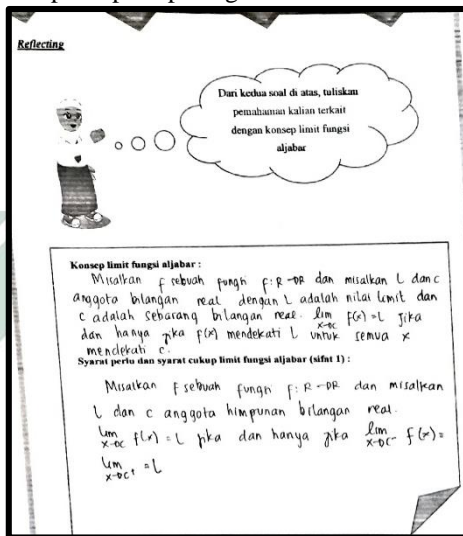 Reflecting
Dari kedua soal di atas, tuliskan
pemahaman kalian terkait
dengan konsep limit fungsi
aljabar
Konsep limit fungsi aljabar :
Misalkan f sebuah fungsi f: R→R dan misalkan L dan c
anggota bilangan real dengan L adalah nilai limit dan
c adalah sebarang bilangan real. lim x→c f(x) = L jika
dan hanya jika f(x) mendekati L untuk semua x
mendekati c.
Syarat perlu dan syarat cukup limit fungsi aljabar (sifat 1) :
Misalkan f sebuah fungsi f: R→R dan misalkan
L dan c anggota himpunan bilangan real.
lim x→c f(x) = L jika dan hanya jika lim x→c⁻ f(x) =
lim x→c⁺ = L